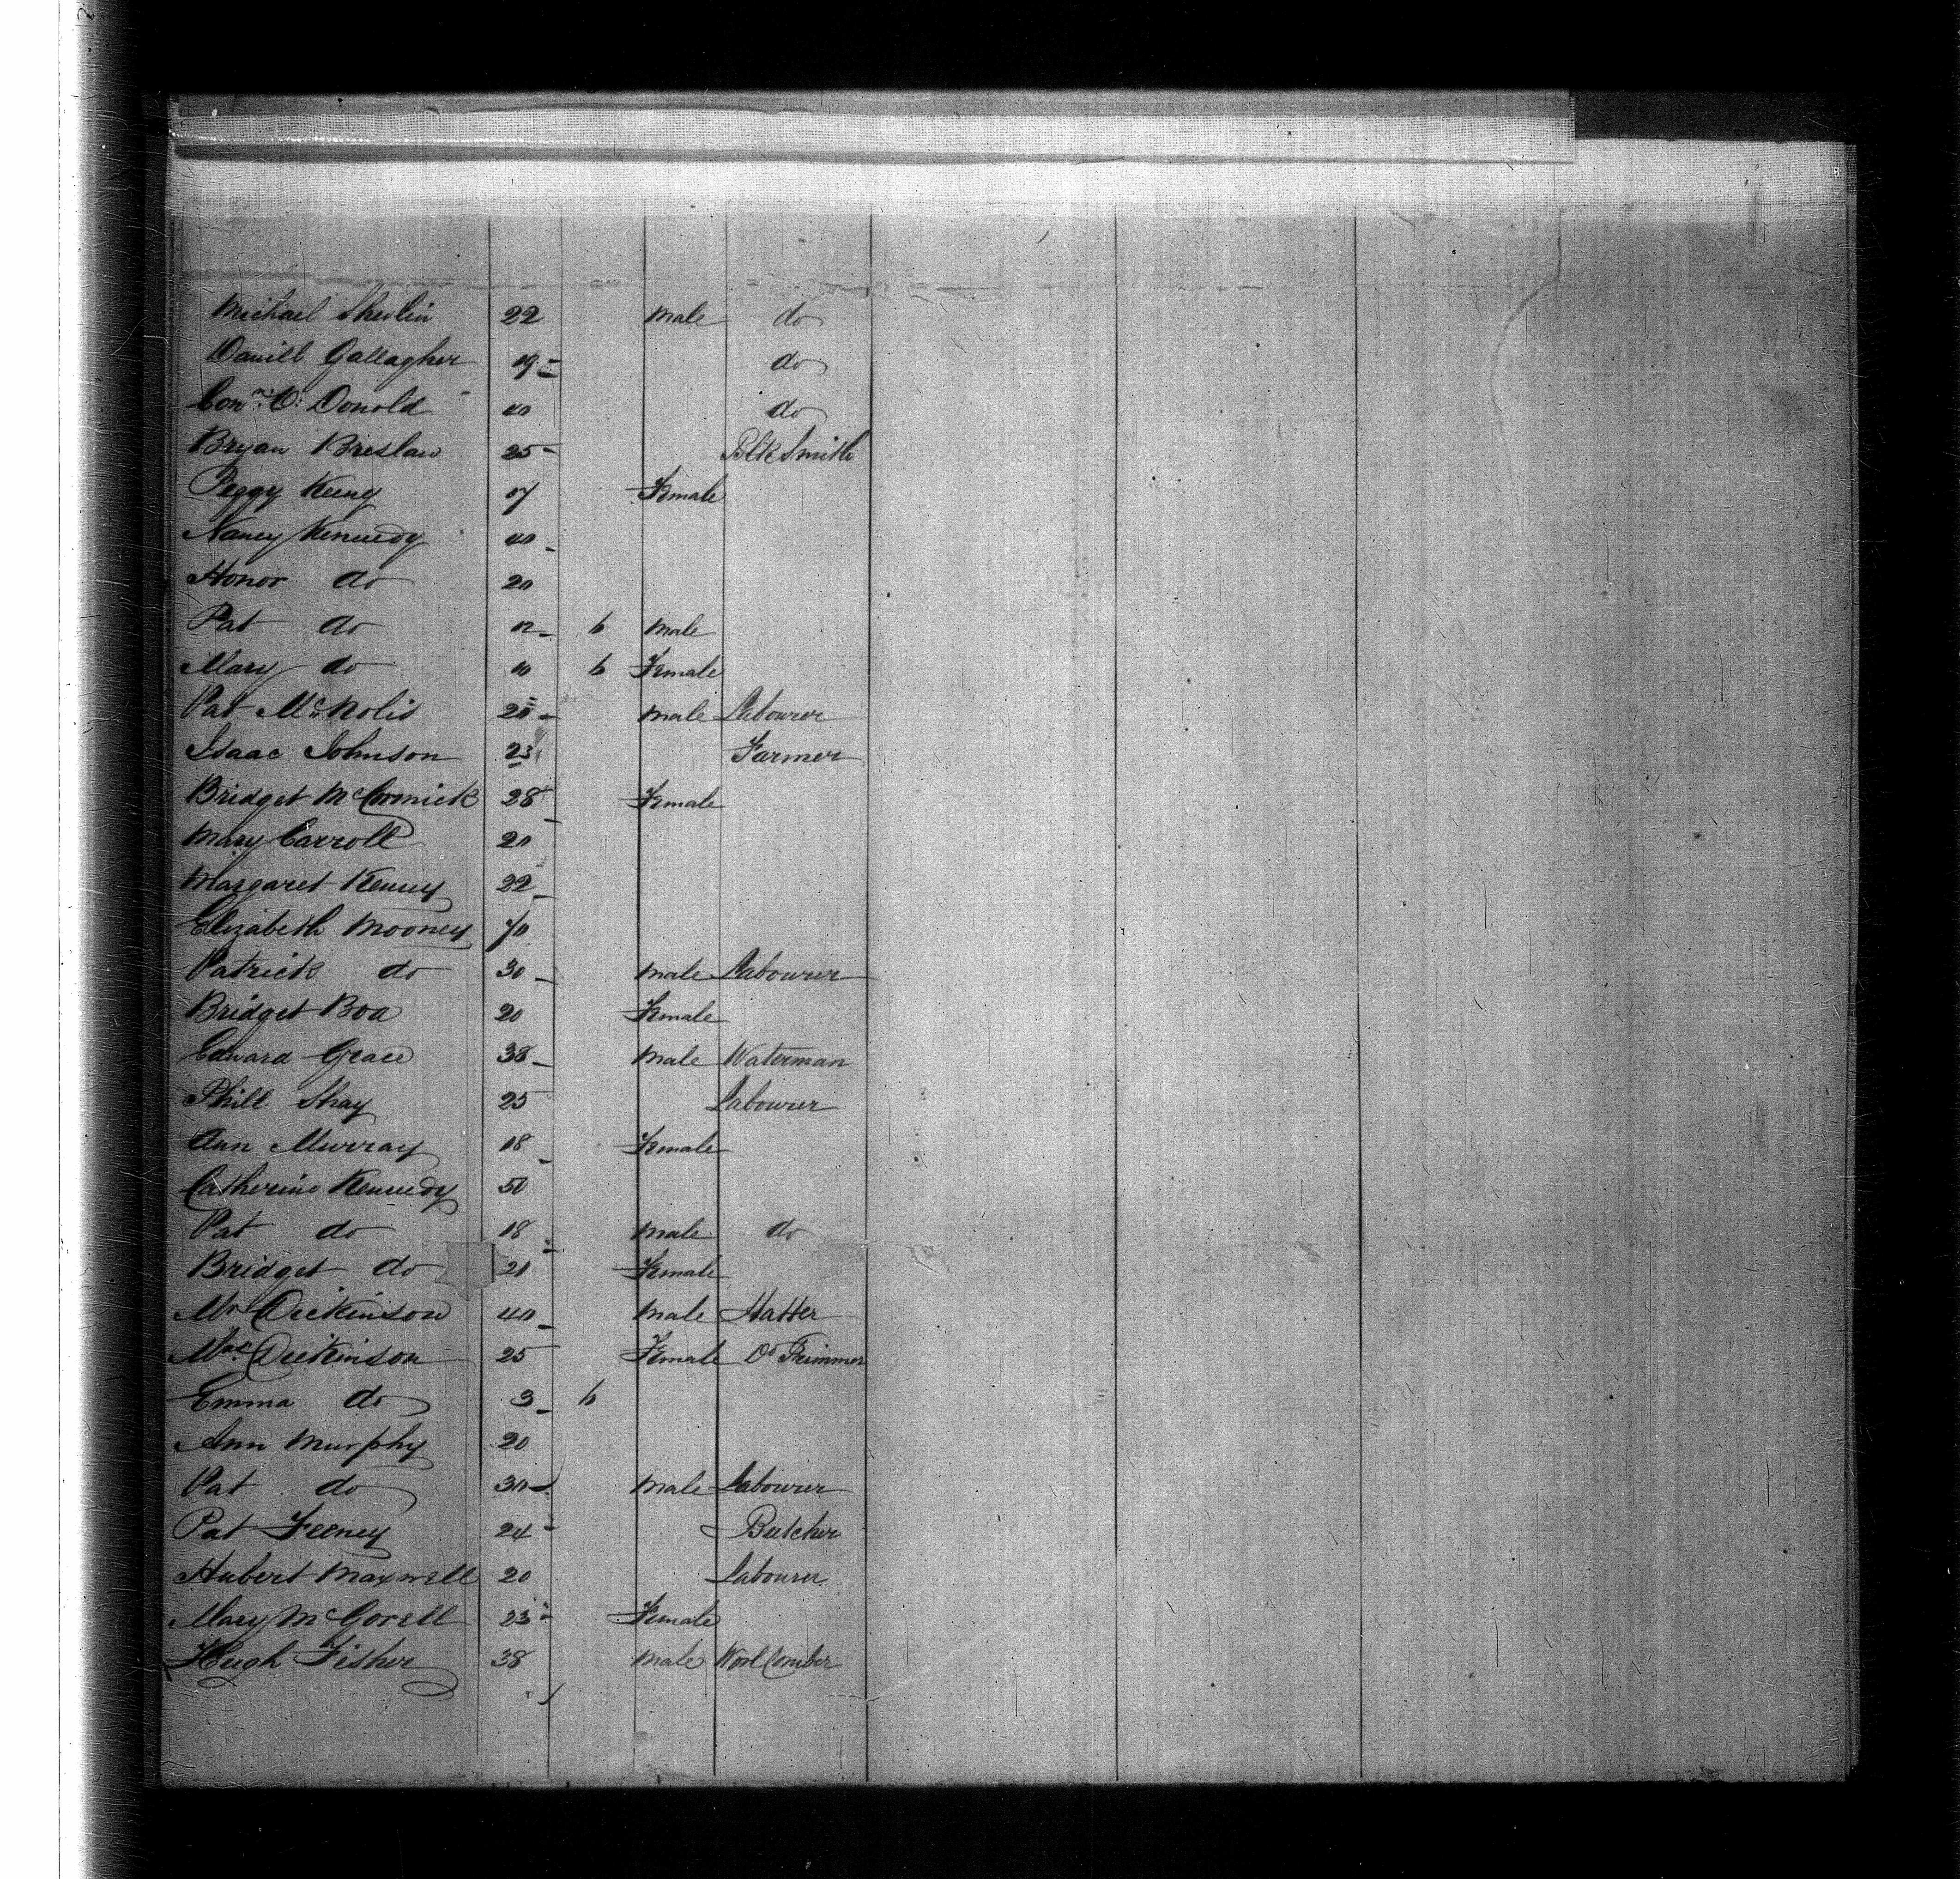 Michael Shevlin 22 male do
Daniell Gallagher 19 do
Conn. O: Donold 40 do
Bryan Breslaw 25 Blk Smith
Peggy Keeny 17 Female
Nancy Kennedy 40
Honor do 20
Pat do 12 6 male
Mary do 10 6 Female
Pat McNolis 20 male Labourer
Isaac Johnson 23 Farmer
Bridget McCormick 28 Female
Mary Carroll 20
Margaret Kenny 22
Elizabeth Mooney 70
Patrick do 30 male Labourer
Bridget Boa 20 Female
Edward Grace 38 male Waterman
Phill Shay 25 Labourer
Ann Murray 18 Female
Catherine Kennedy 50
Pat do 18 male do
Bridget do 20 Female
Mr Dickinson 40 male Hatter
Mrs Dickinson 25 Female Do Trimmer
Emma do 3 6
Ann Murphy 20
Pat do 30 male Labourer
Pat Feeney 24 Butcher
Hubert Maxwell 20 Labourer
Mary McGorell 23 Female
Hugh Fisher 38 male Wool Comber